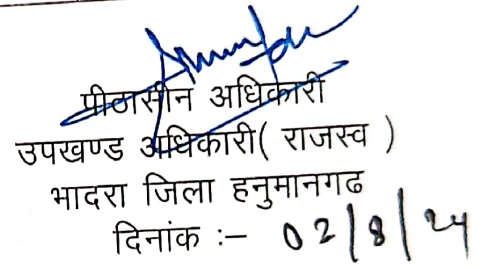 पीठासीन अधिकारी
उपखण्ड अधिकारी( राजस्व )
भादरा जिला हनुमानगढ
दिनांक :– 02/8/24